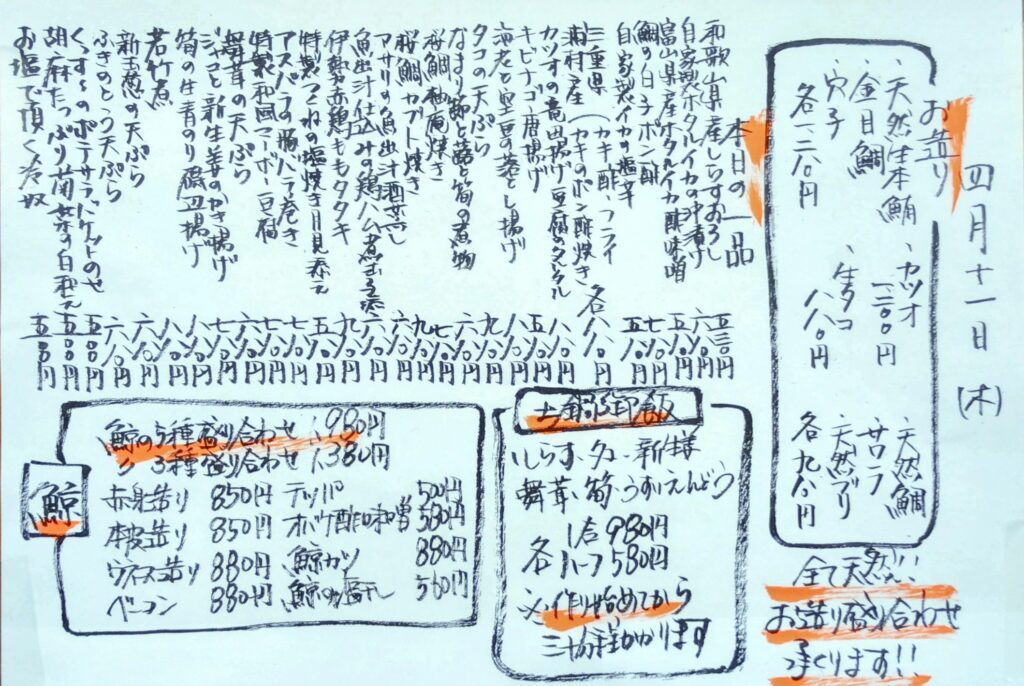 四月十一日(木)
お造り
・天然生本鮪
・金目鯛
・穴子
各一二八〇円
・カツオ
一二〇〇円
・生タコ
八八〇円
・天然鯛
・サワラ
・天然ブリ
各九八〇円
全て天然!!
お造り盛り合わせ
承ります!!
本日の一品
和歌山県産しらすおろし 五三〇円
自家製ホタルイカの沖漬け 六八〇円
富山県産ホタルイカ酢味噌
鯛の白子ポン酢 七八〇円
自家製イカの塩辛 五八〇円
三重県
浦村産(カキ酢、フライ
カキのポン酢焼き 各八八〇円
カツオの竜田揚げ豆腐のタルタル 八八〇円
キビナゴ唐揚げ 五八〇円
海老と空豆の落とし揚げ 八八〇円
タコの天ぷら 九八〇円
なまり節と蕗と筍の煮物 六八〇円
桜鯛柚庵焼き 七八〇円
桜鯛カブト焼き 九八〇円
アサリの魚出汁酒蒸し 六八〇円
魚出汁仕込みの鶏ハム煮玉子添え 六八〇円
伊勢赤鶏ももタタキ 九八〇円
特製つくねの塩焼き月見添え 五八〇円
アスパラの豚バラ巻き 七八〇円
特製和風マーボー豆腐 七八〇円
舞茸の天ぷら
ジャコと新生姜のかき揚げ 八八〇円
筍の生青のり磯辺揚げ 八八〇円
若竹煮 六八〇円
新玉葱の天ぷら 六八〇円
ふきのとう天ぷら
のポテサラバケットのせ 五八〇円
胡麻たっぷり菊菜の白和え 五八〇円
お塩で頂く冷奴 五八〇円
土鍋御飯
・しらす・タコ・新生姜
舞茸・筍・うすいえんどう
各 1合980円
ハーフ580円
※作り始めてから
三十分程かかります
鯨
鯨の5種盛り合わせ 1,980円
〃 3種盛り合わせ 1,380円
赤身造り 850円
本皮造り 850円
ウネス造り 880円
ベーコン 880円
テッパ 500円
オバケ酢味噌 580円
鯨カツ 880円
鯨の塩干し 560円